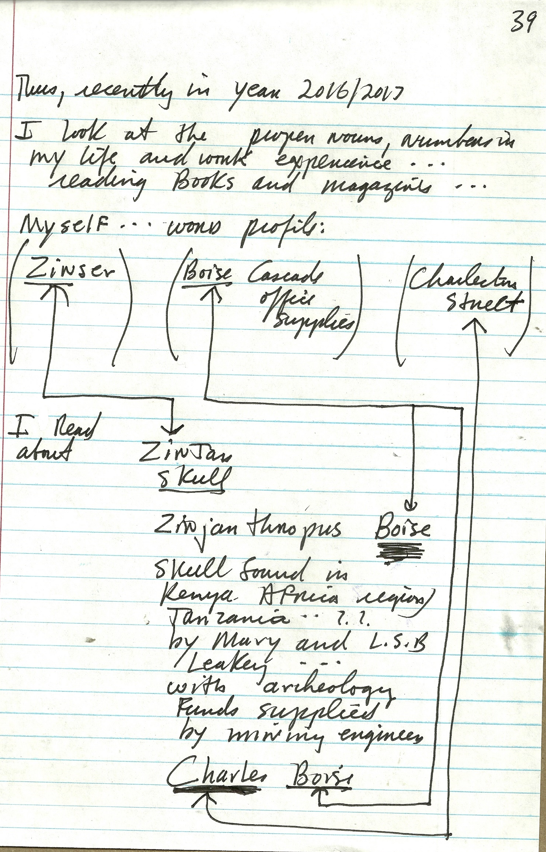 39
Thus, recently in year 2016/2017
I look at the proper nouns, numbers in
my life and work experience ...
reading Books and magazines ...
Myself ... word profile:
(Zinser) (Boise Cascade office supplies) (Charleston Street)
I Read
about
ZinJan
Skull
Zinjanthropus Boise
Skull found in
Kenya Africa region)
Tanzania .. ?.?.
by Mary and L.S.B
Leakey ...
with archeology
Funds supplied
by mining engineer
Charles Boise